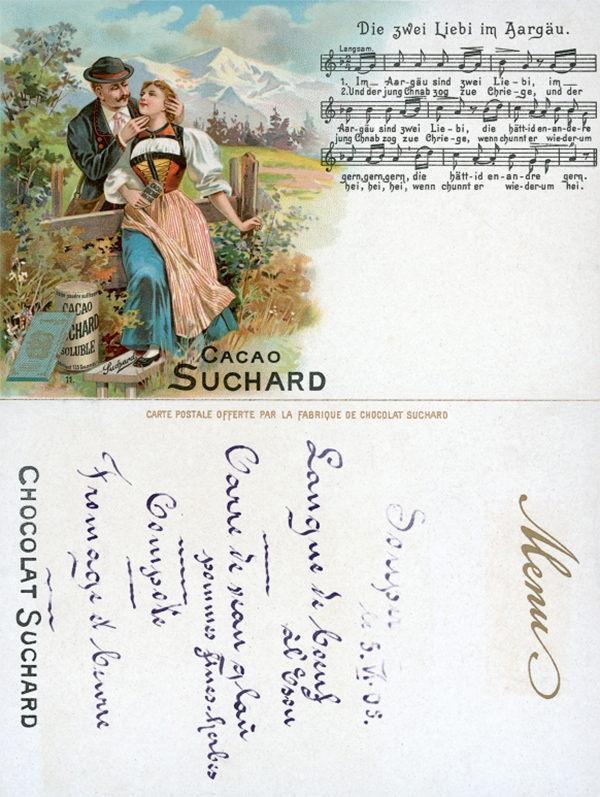 Die zwei Liebi im Aargäu.
Langsam.
1. Im Aar-gäu sind zwei Lie-bi, im
2. Und der jung Chnab zog zue Chrie-ge, und der
Aar-gäu sind zwei Lie-bi, die hätt-id en-an-de-re
jung Chnab zog zue Chrie-ge, wenn chunnt er wie-der-um
gern, gern, gern, die hätt-id en-an-dre gern.
hei, hei, hei, wenn chunnt er wie-der-um hei.
CACAO
SUCHARD
SOLUBLE
Suchard
11.
CACAO
SUCHARD
CARTE POSTALE OFFERTE PAR LA FABRIQUE DE CHOCOLAT SUCHARD
Menu
Souper
5. VI. 05.
Langue de boeuf
Carré de veau glacé
pommes fines-herbes
Compôte
Fromage & beurre
CHOCOLAT SUCHARD